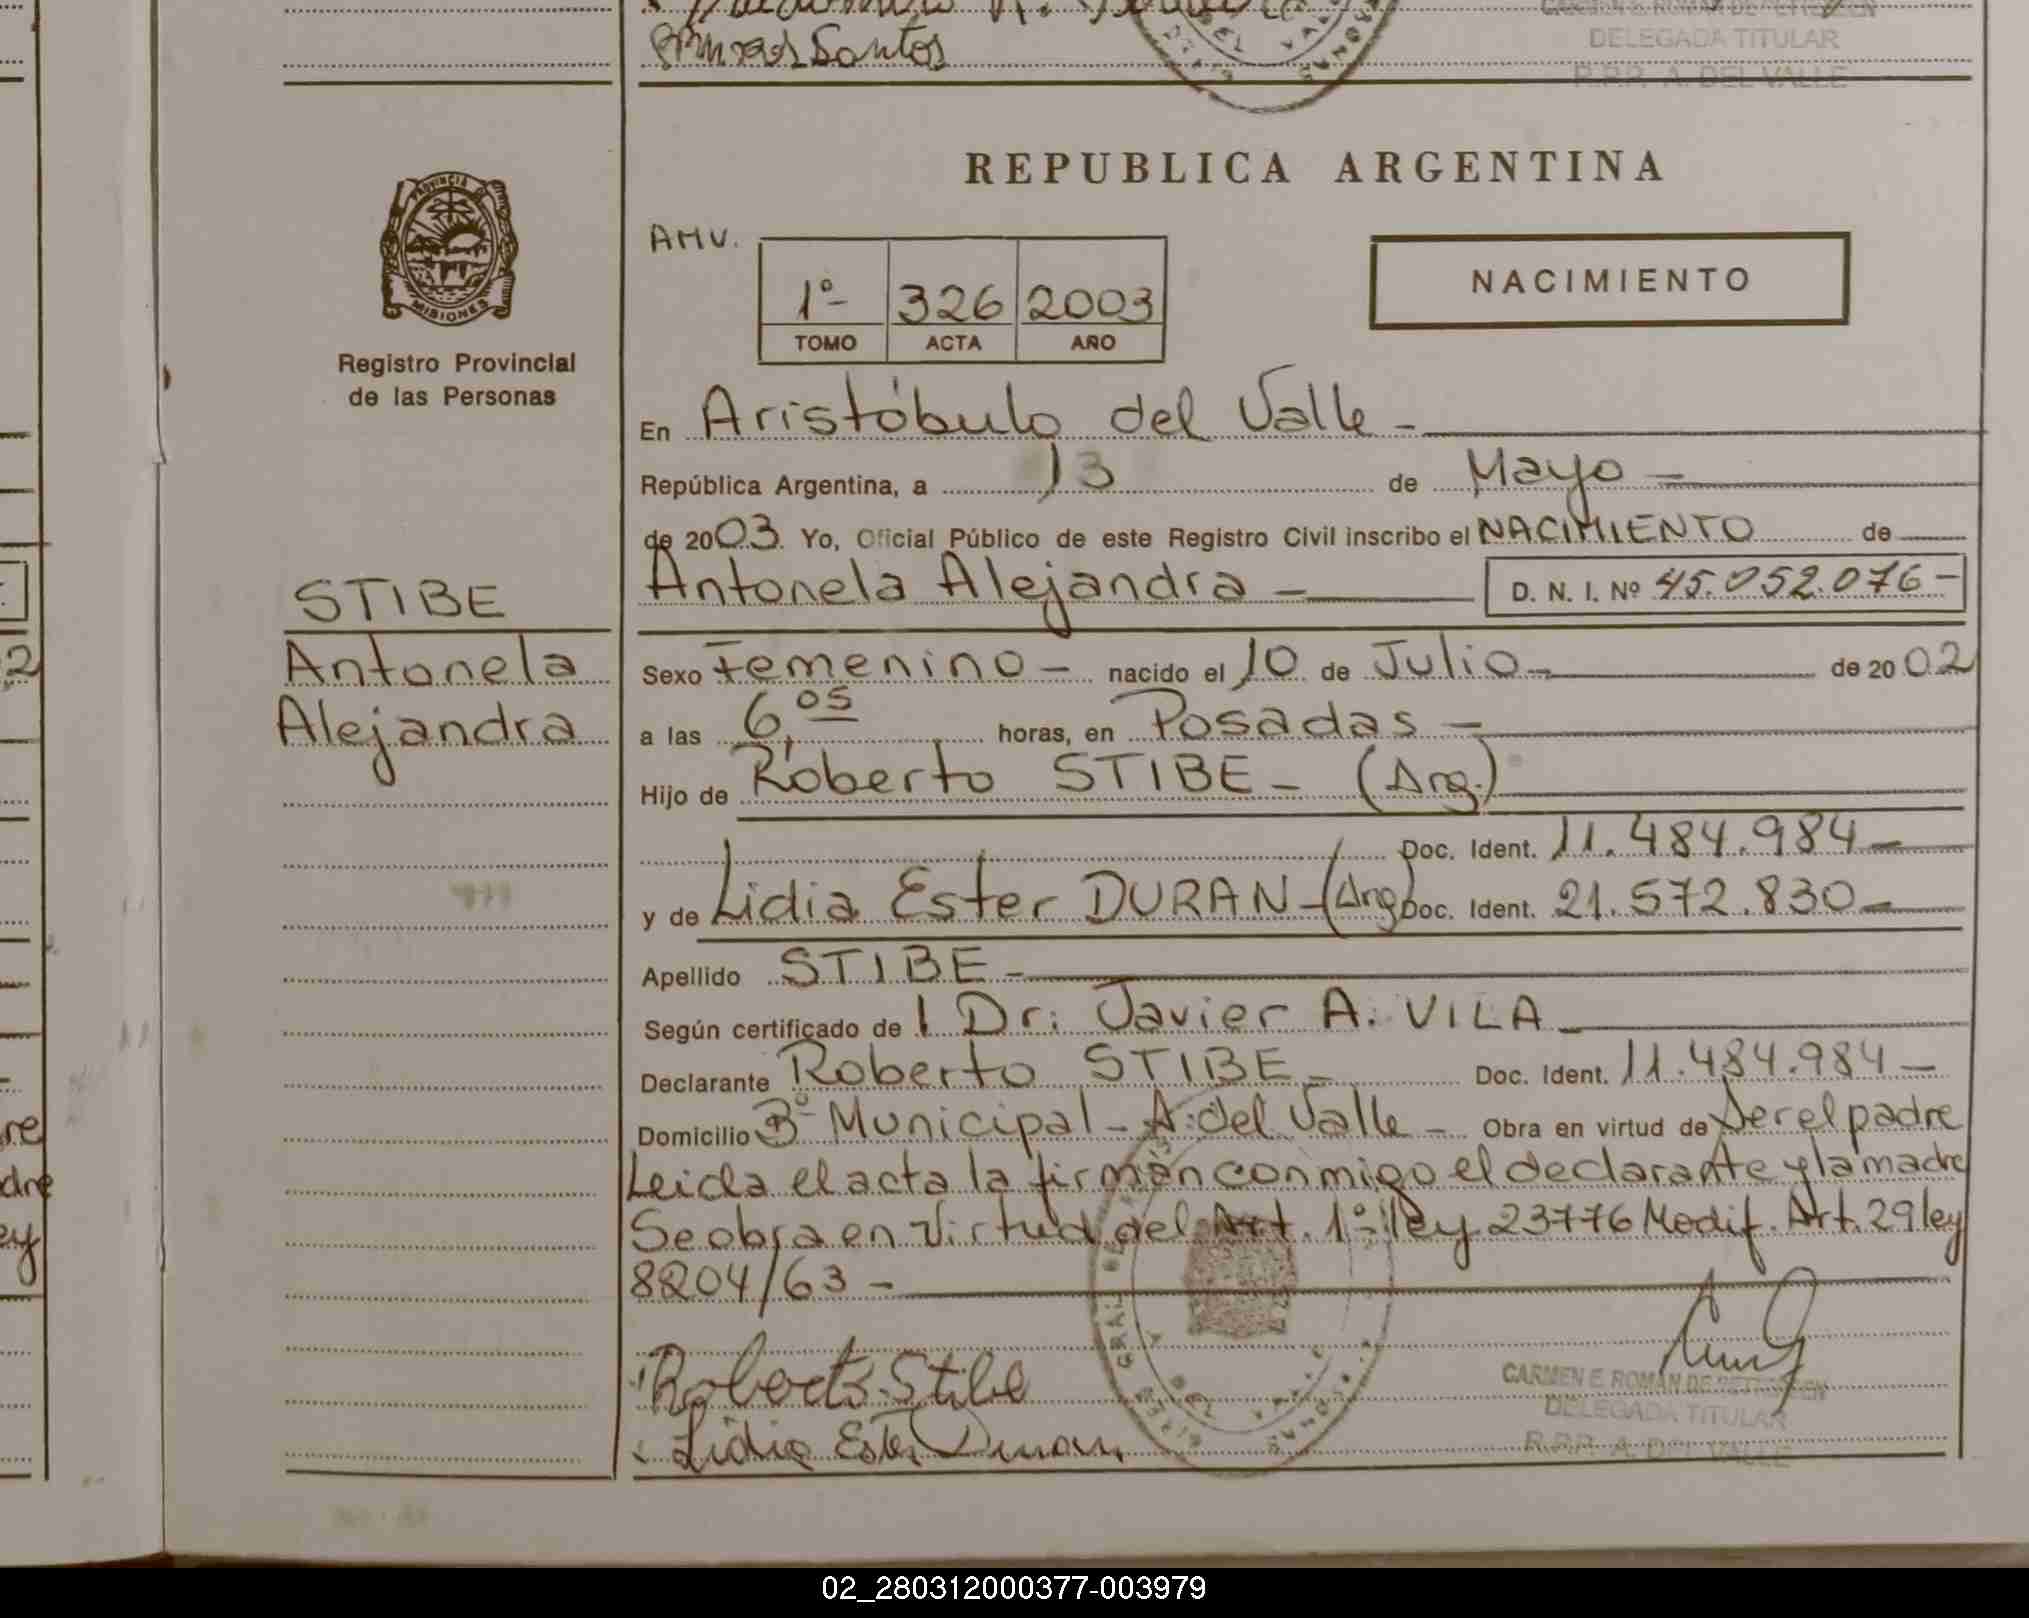 Santos
DELEGADA TITULAR
R.P.P. A. DEL VALLE
PROVINCIA DE
MISIONES
Registro Provincial
de las Personas
REPUBLICA ARGENTINA
AMV.
1º- 326 2003
TOMO ACTA AÑO
NACIMIENTO
En Aristóbulo del Valle -
República Argentina, a 13 de Mayo -
de 2003 Yo, Oficial Público de este Registro Civil inscribo el NACIMIENTO de
Antonela Alejandra - D. N. I. Nº 45.052.076-
STIBE
Antonela
Alejandra
Sexo Femenino - nacido el 10 de Julio - de 2002
a las 6,05 horas, en Posadas -
Hijo de Roberto STIBE - (Arg.)
Doc. Ident. 11.484.984-
y de Lidia Ester DURAN - (Arg) Doc. Ident. 21.572.830-
Apellido STIBE -
Según certificado de l Dr: Javier A. VILA -
Declarante Roberto STIBE - Doc. Ident. 11.484.984-
Domicilio Bº Municipal - A. del Valle - Obra en virtud de Ser el padre
Leida el acta la firman conmigo el declarante y la madre
Se obra en virtud del Art. 1º ley 23776 Modif. Art. 29 ley
8204/63 -
Roberto Stibe
Lidia Ester Duran
CARMEN E. ROMAN DE
DELEGADA TITULAR
R.P.P. A. DEL VALLE
02_280312000377-003979